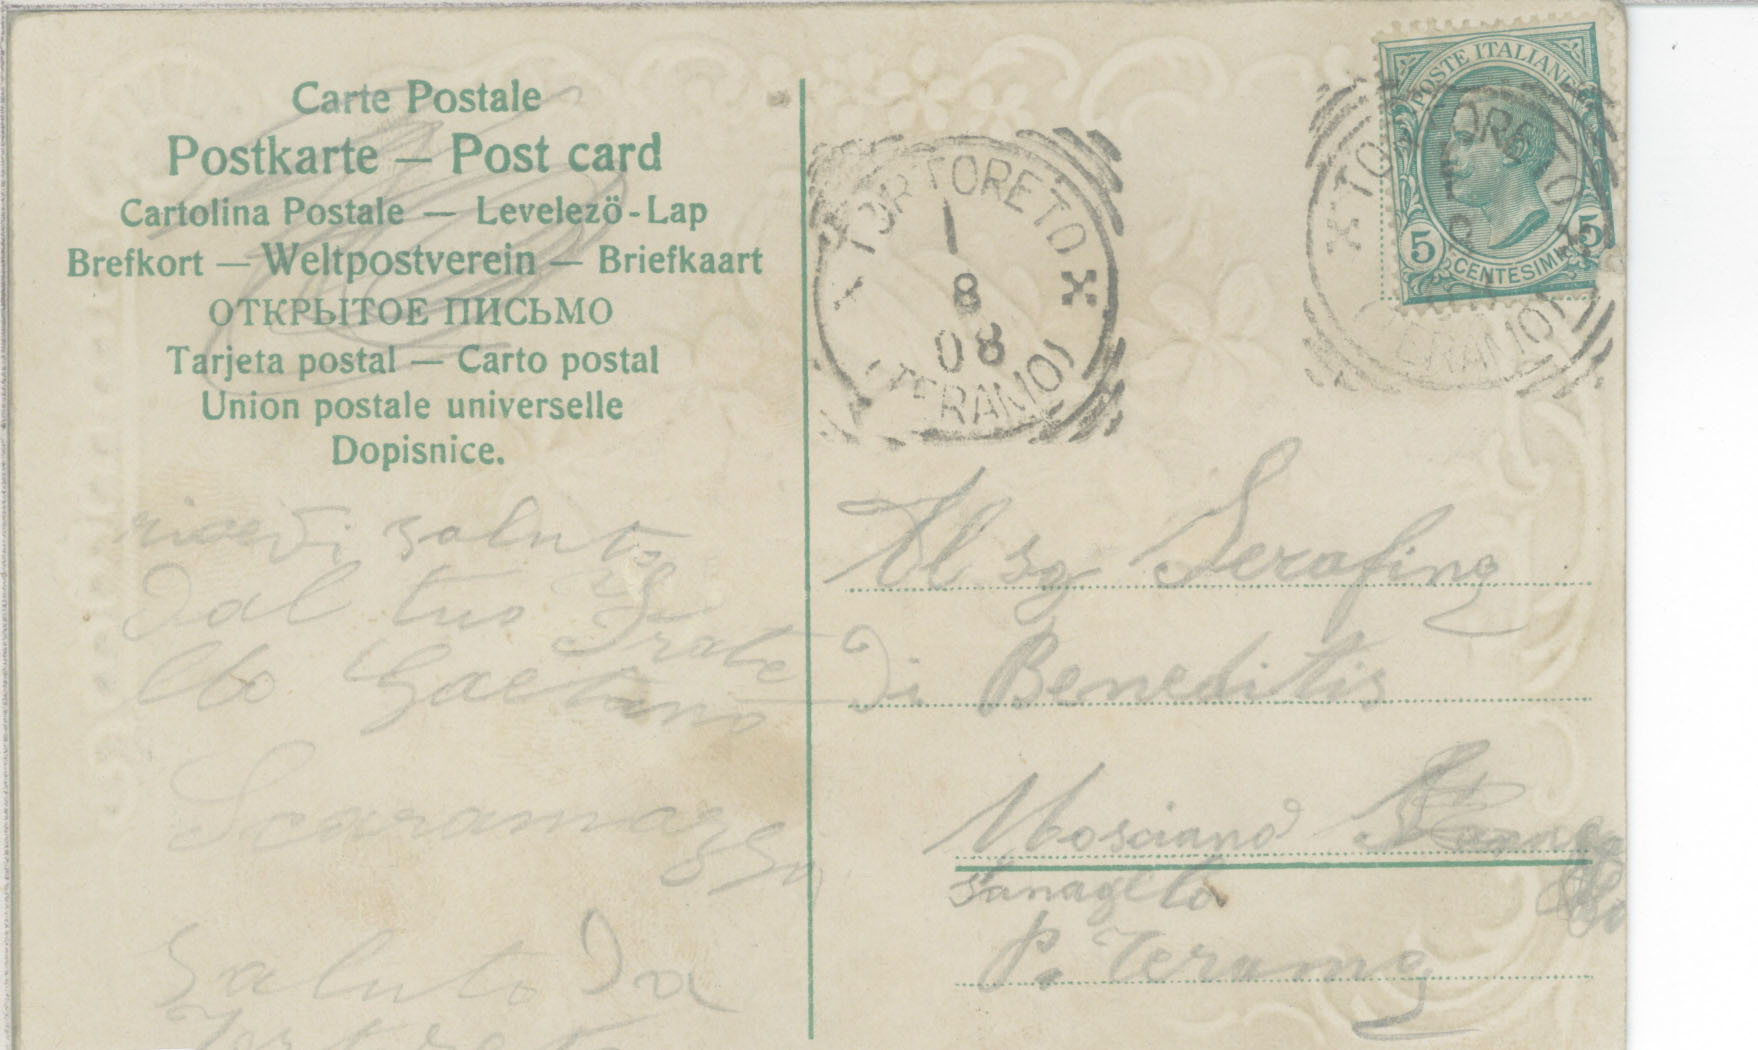 Carte Postale
Postkarte — Post card
Cartolina Postale — Levelező-Lap
Brefkort — Weltpostverein — Briefkaart
ОТКРЫТОЕ ПИСЬМО
Tarjeta postal — Carto postal
Union postale universelle
Dopisnice.
ricevi saluto
dal tuo
Frate
llo Gaetano
Scaramazza
Saluto Da
Tortoreto
TORTORETO
1
8
08
(TERAMO)
POSTE ITALIANE
5 CENTESIMI 5
TORTORETO
(TERAMO)
Al sg Serafino
Di Beneditis
Mosciano
Sanagelo
P. Teramo